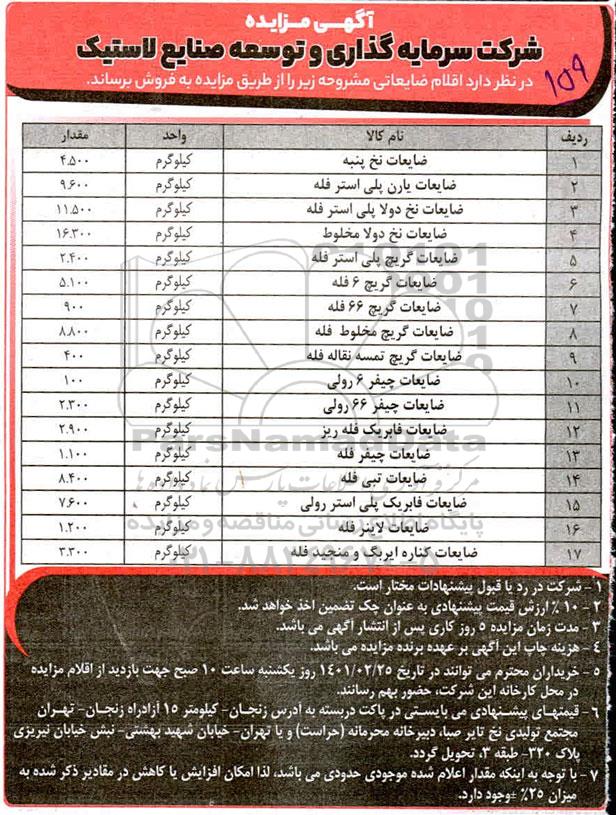 آگهی مزایده
شرکت سرمایه گذاری و توسعه صنایع لاستیک
در نظر دارد اقلام ضایعاتی مشروحه زیر را از طریق مزایده به فروش برساند.
۱۵۹
ردیف نام کالا واحد مقدار
۱ ضایعات نخ پنبه کیلوگرم ۴.۵۰۰
۲ ضایعات یارن پلی استر فله کیلوگرم ۹.۶۰۰
۳ ضایعات نخ دولا پلی استر فله کیلوگرم ۱۱.۵۰۰
۴ ضایعات نخ دولا مخلوط کیلوگرم ۱۶.۳۰۰
۵ ضایعات گریچ پلی استر فله کیلوگرم ۲.۴۰۰
۶ ضایعات گریچ ۶ فله کیلوگرم ۵.۱۰۰
۷ ضایعات گریچ ۶۶ فله کیلوگرم ۹۰۰
۸ ضایعات گریچ مخلوط فله کیلوگرم ۸.۸۰۰
۹ ضایعات گریچ تمسه نقاله فله کیلوگرم ۴۰۰
۱۰ ضایعات چیفر ۶ رولی کیلوگرم ۱۰۰
۱۱ ضایعات چیفر ۶۶ رولی کیلوگرم ۲.۳۰۰
۱۲ ضایعات فابریک فله ریز کیلوگرم ۲.۹۰۰
۱۳ ضایعات چیفر فله کیلوگرم ۱.۱۰۰
۱۴ ضایعات تبی فله کیلوگرم ۸.۴۰۰
۱۵ ضایعات فابریک پلی استر رولی کیلوگرم ۷.۶۰۰
۱۶ ضایعات لاینر فله کیلوگرم ۱.۲۰۰
۱۷ ضایعات کناره ایربگ و منجید فله کیلوگرم ۳.۳۰۰
ParsNamadData
پایگاه اطلاع رسانی مناقصه و مزایده
۱ - شرکت در رد یا قبول پیشنهادات مختار است.
۲ - ۱۰ ٪ ارزش قیمت پیشنهادی به عنوان چک تضمین اخذ خواهد شد.
۳ - مدت زمان مزایده ۵ روز کاری پس از انتشار آگهی می باشد.
۴ - هزینه چاپ این آگهی بر عهده برنده مزایده می باشد.
۵ - خریداران محترم می توانند در تاریخ ۱۴۰۱/۰۲/۲۵ روز یکشنبه ساعت ۱۰ صبح جهت بازدید از اقلام مزایده
در محل کارخانه این شرکت، حضور بهم رسانند.
۶ - قیمتهای پیشنهادی می بایستی در پاکت دربسته به آدرس زنجان- کیلومتر ۱۵ آزادراه زنجان- تهران
مجتمع تولیدی نخ تایر صبا، دبیرخانه محرمانه (حراست) و یا تهران- خیابان شهید بهشتی- نبش خیابان تبریزی
پلاک ۳۲۰- طبقه ۳، تحویل گردد.
۷ - با توجه به اینکه مقدار اعلام شده موجودی حدودی می باشد، لذا امکان افزایش یا کاهش در مقادیر ذکر شده به
میزان ۲۵٪ ±وجود دارد.